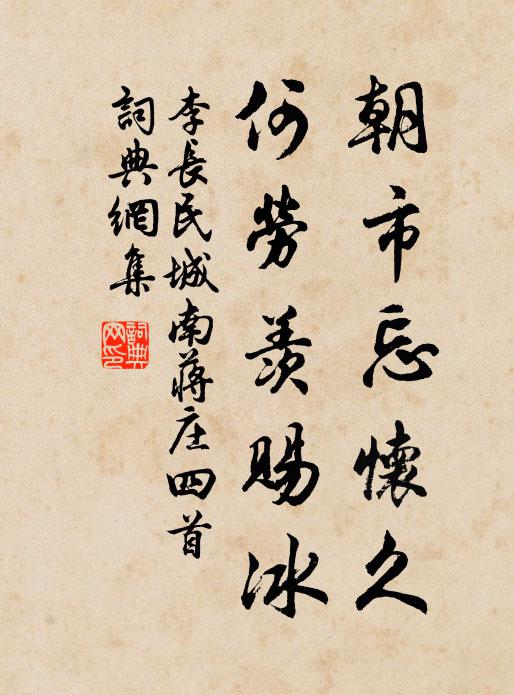 朝市忘懷久
何勞羨賜冰
李長民城南蔣庄四首
詞典網集
詞典網印